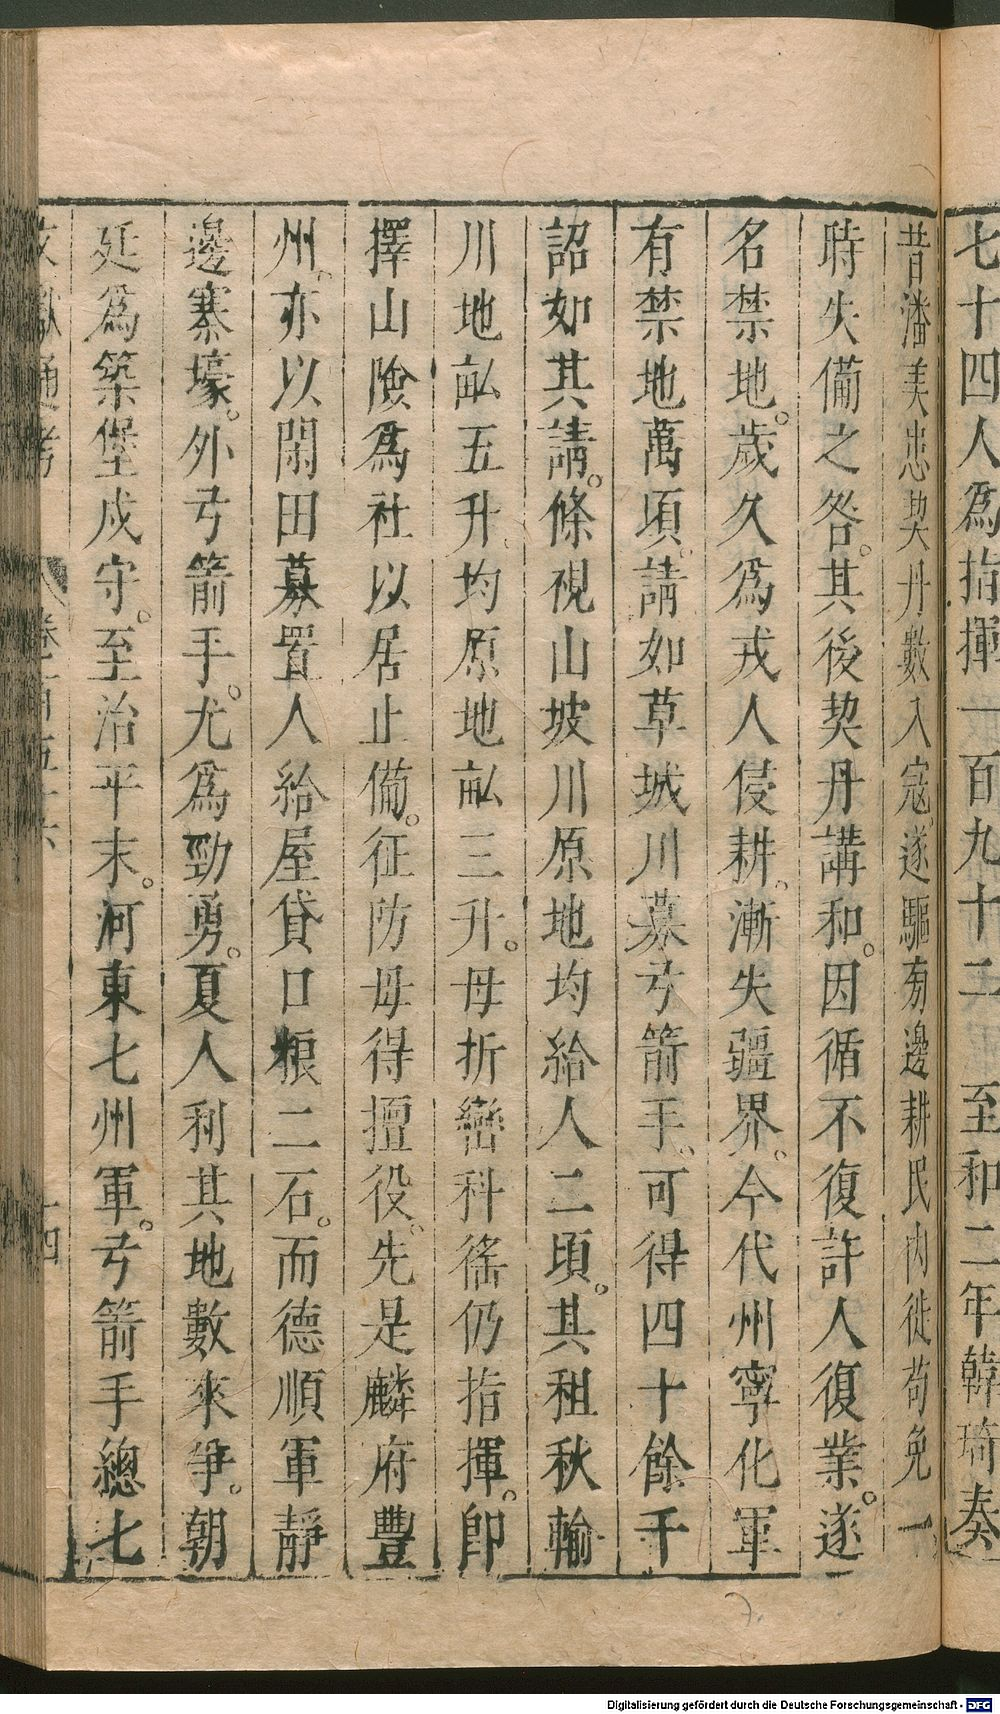 七十四人爲指揮一百九十二至和二年韓琦奏
昔潘美患契丹數入寇遂驅旁邊耕民內徙苟免一
時失備之咎。其後契丹講和。因循不復許人復業。遂
名禁地。歲久爲戎人侵耕。漸失疆界。今代州寧化軍
有禁地萬頃。請如草城川募弓箭手。可得四十餘千
詔如其請。條視山坡川原地均給人二頃。其租秋輸
川地畝五升。均原地畝三升。毋折變科徭仍指揮。卽
擇山險爲社以居止備。征防毋得擅役。先是麟府豐
州。亦以閑田募置人給屋貸口粮二石。而德順軍靜
邊寨壕。外弓箭手。尤爲勁勇。夏人利其地數來爭。朝
延爲築堡戍守。至治平末。河東七州軍。弓箭手總七
文獻通考 卷一百五十六 十四
Digitalisierung gefördert durch die Deutsche Forschungsgemeinschaft - DFG